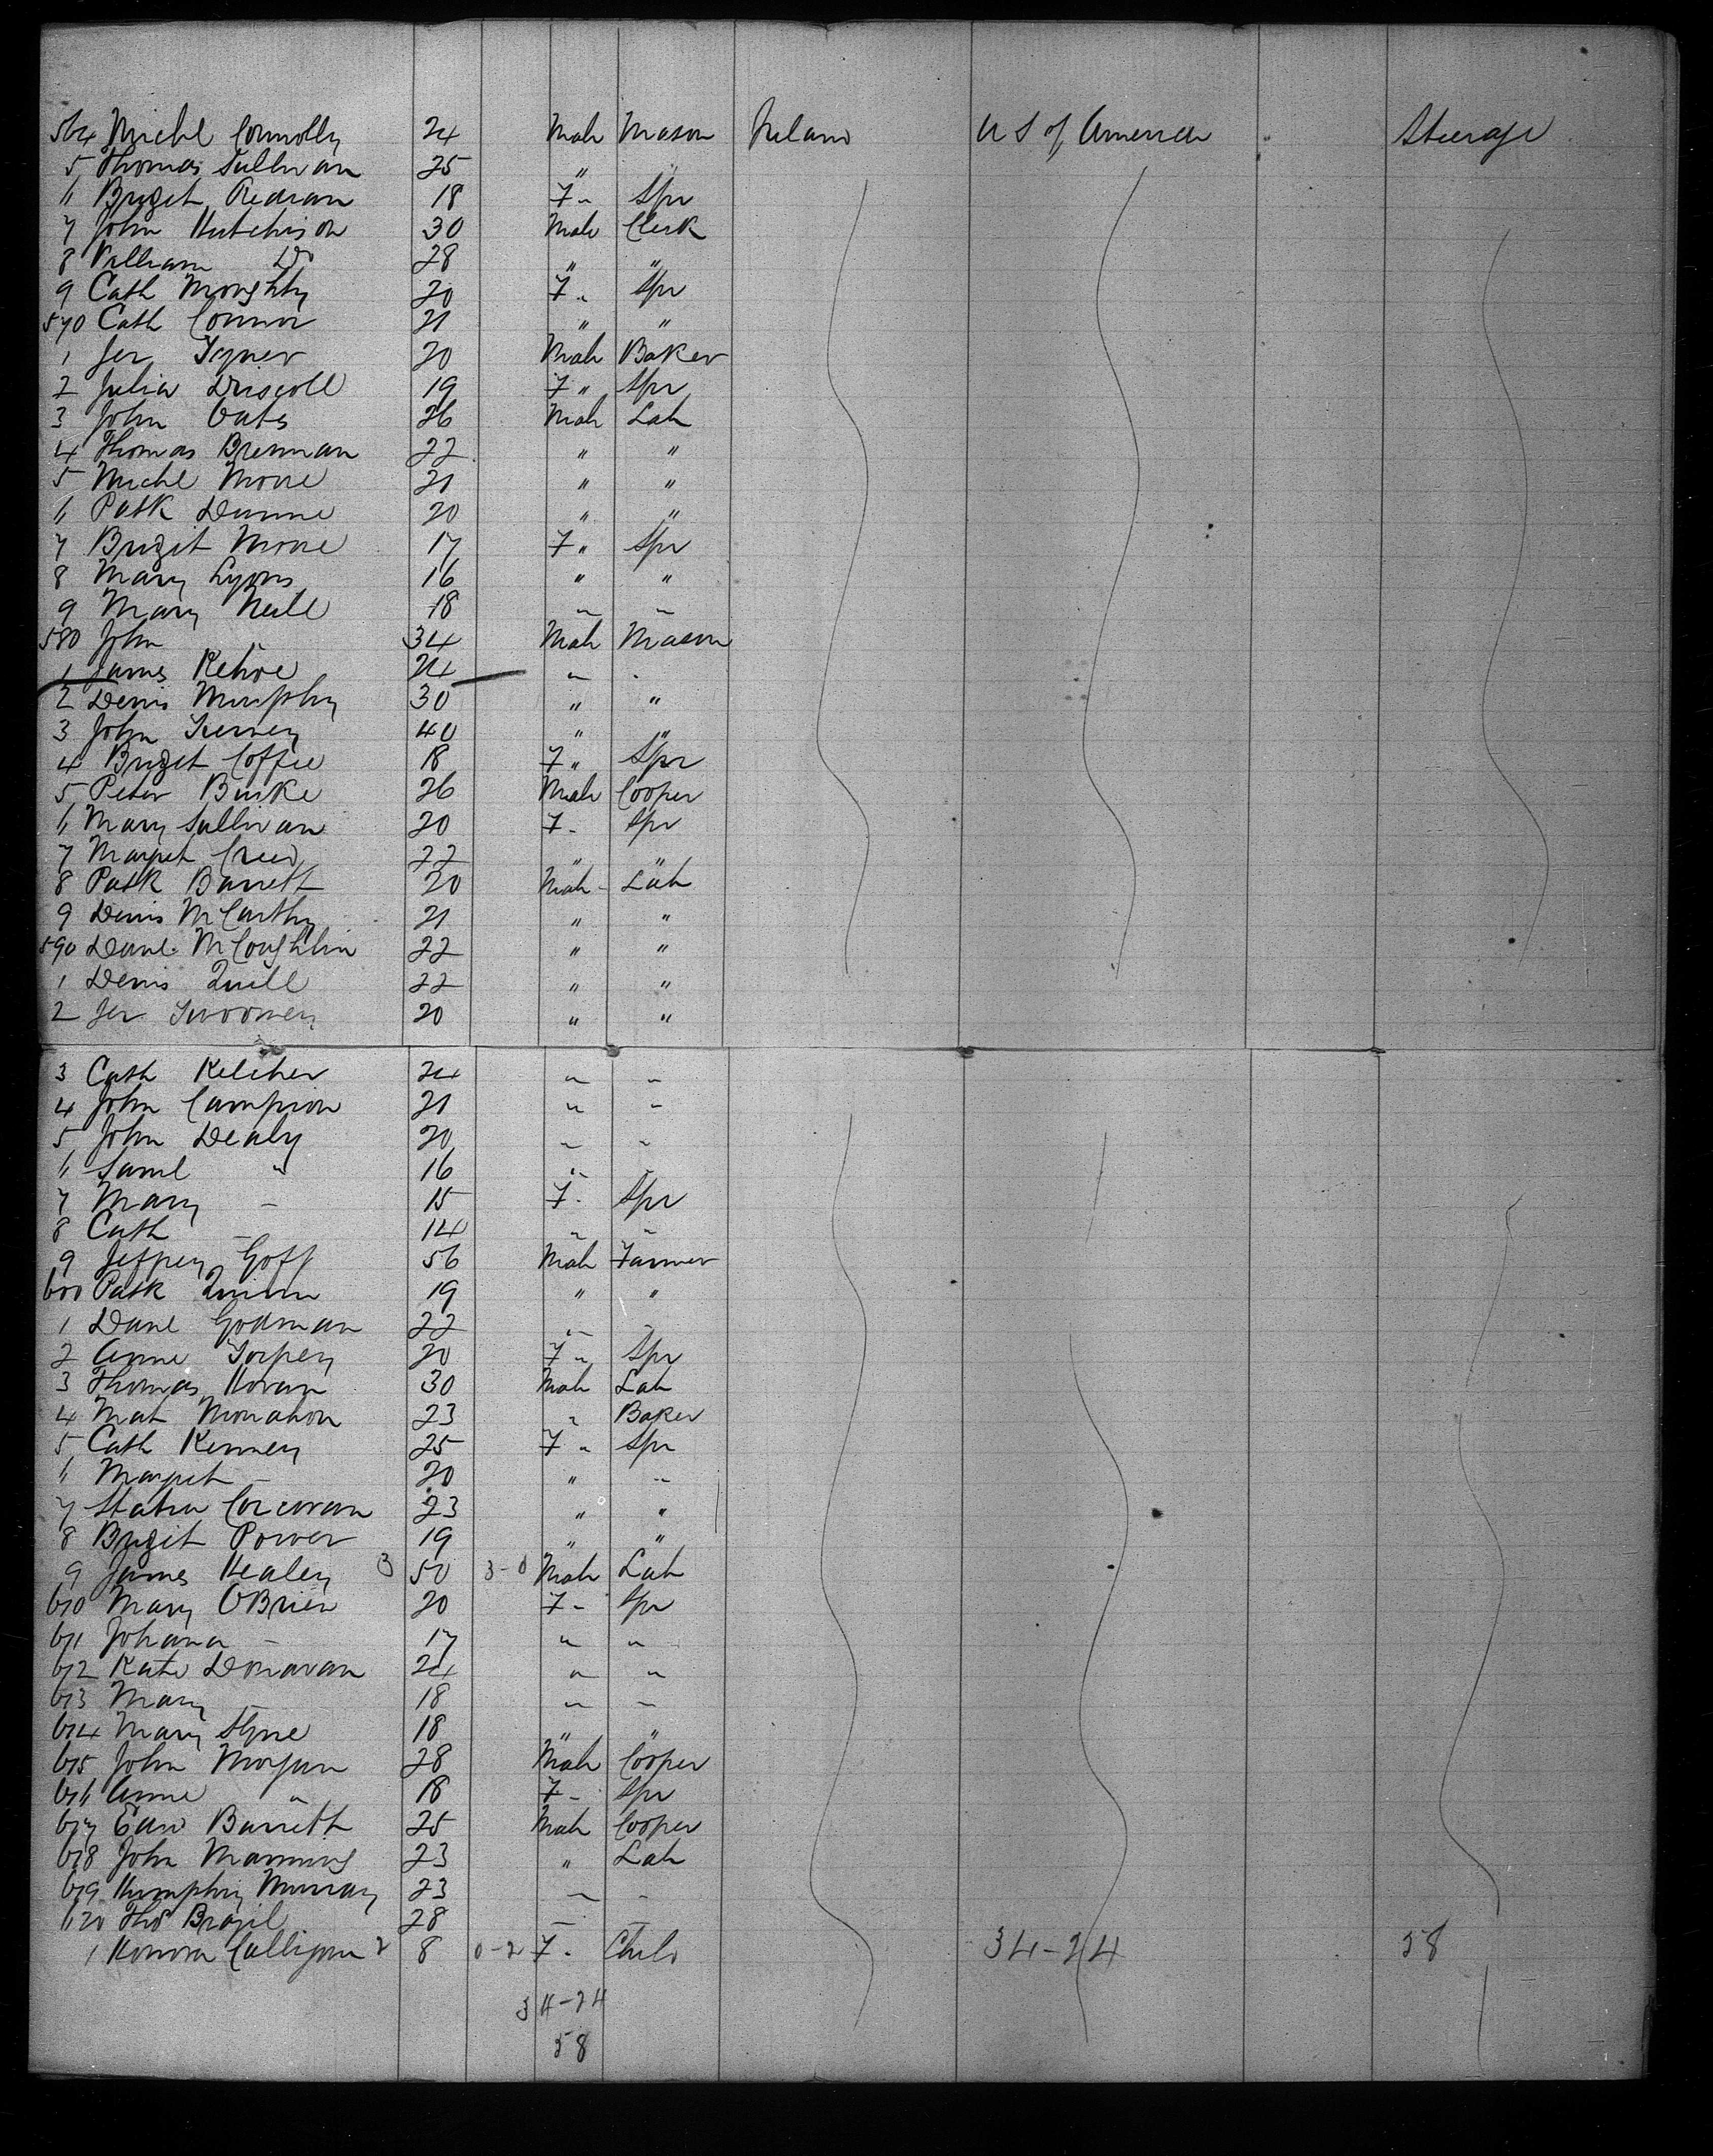 564 Michl Connolly 24 Male Mason Ireland US of America Steerage
5 Thomas Sullivan 25 " "
6 Brigit Redian 18 F " Spr
7 John Hutchison 30 Male Clerk
8 William Do 28 " "
9 Cath 20 F " Spr
570 Cath Connor 21 " "
1 Jer 20 Male Baker
2 Julia Driscoll 19 F " Spr
3 John Oats 26 Male Lab
4 Thomas Brennan 22 " "
5 Michl Moore 21 " "
6 Patk Dunne 20 " "
7 Brigit Moore 17 F " Spr
8 Mary Lyons 16 " "
9 Mary Neill 18 " "
580 John " 34 Male Mason
1 James Kehoe 24 "
2 Denis Murphy 30 " "
3 John Tierney 40 " "
4 Brigit Coffee 18 F " Spr
5 Peter Burke 26 Male Cooper
6 Mary Sullivan 20 F " Spr
7 Margret Creed 22 " "
8 Patk Barrett 20 Male Lab
9 Denis McCarthy 21 " "
590 Danl McCoughlin 22 " "
1 Denis Quill 22 " "
2 Jer Twoomey 20 " "
3 Cath Keliher 24 " "
4 John Campion 21 " "
5 John Dealy 20 " "
6 Saml " 16 " "
7 Mary " 15 F " Spr
8 Cath " 14 " "
9 Jeffrey Goff 56 Male Farmer
600 Patk Quinn 19 " "
1 Danl Godman 22 " "
2 Anne Torpey 20 F " Spr
3 Thomas Horan 30 Male Lab
4 Mat Monahon 23 " Baker
5 Cath Kenney 25 F " Spr
6 Margret " 20 " "
7 Statia Corcoran 23 " "
8 Brigit Power 19 " "
9 James Healey 3 50 3-0 Male Lab
610 Mary OBrien 20 F " Spr
611 Johana " 17 " "
612 Kate Donavan 24 " "
613 Mary " 18 " "
614 Mary 18 " "
615 John Morgan 28 Male Cooper
616 Anne " 18 F " Spr
617 Edwd Barrett 25 Male Cooper
618 John Manning 23 " Lab
619 Humphry Murray 23 " "
620 Thos Brazil 28 " "
1 Honora Calligan 2 8 0-2 F " Child 34-24 58
34-24
58